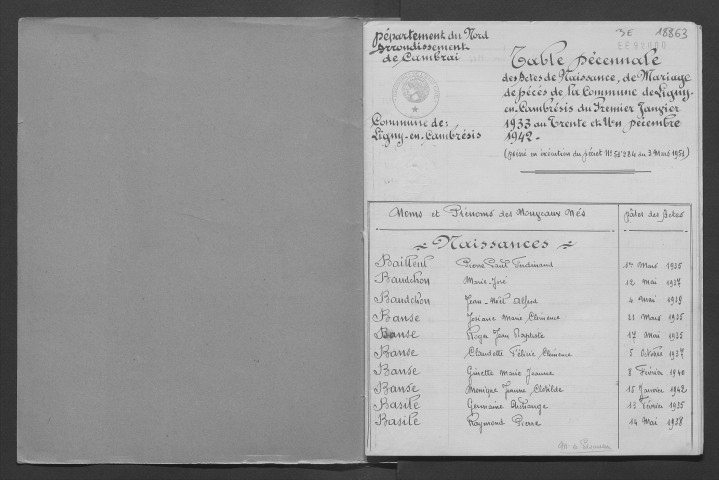 3E 18863
Département du Nord
Arrondissement
de Cambrai
Table Décennale
des Actes de Naissance, de Mariage
de Décés de la Commune de Ligny-
en-Cambrésis du Premier Janvier
1933 au Trente et Un Décembre
1942.-
Commune de:
Ligny-en-Cambrésis
(Dressé en exécution du Décret N° 51-284 du 3 Mars 1951)
Noms et Prénoms des Nouveaux Nés Dates des Actes
Naissances
Bailleul Pierre Paul Ferdinand 1er Mars 1935
Baudchon Marie-José 12 Mai 1937
Baudchon Jean-Noël Alfred 4 Mai 1939
Banse Josiane Marie Clémence 21 Mars 1935
Banse Roger Jean Baptiste 17 Mai 1935
Banse Claudette Félicie Clémence 5 Octobre 1937
Banse Ginette Marie Jeanne 8 Février 1940
Banse Monique Jeanne Clotilde 15 Janvier 1942
Basile Germaine Solange 13 Février 1935
Basile Raymond Pierre 14 Mai 1938